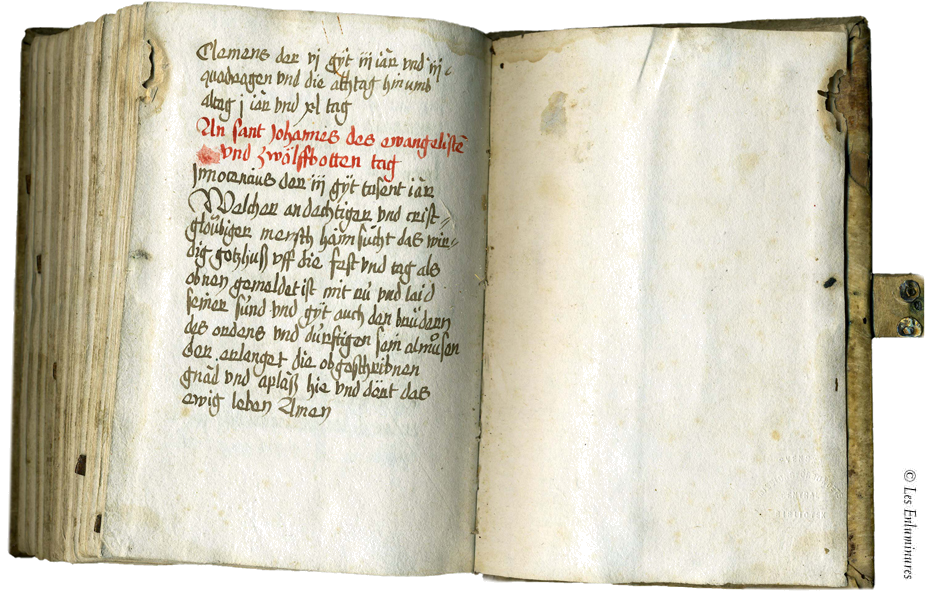 Clemens der vj gÿt iij iar vnd iij
quadragen vnd die achtag hinumb
altag j iar vnd xl tag
An sant Johannes des ewangelisten̄
vnd zwölffbotten tag
Jnnocencius der iij gÿt tusent iar
Welcher andechtiger vnd crist⸗
gloübiger mensch haimsücht das wir⸗
dig gotzhuss vff die fest vnd tag als
obnen gemeldet ist mit rü vnd laid
seiner sünd vnd gÿt auch den brüdern
des ordens vnd dürftigen sein almüsen
der erlanget die obgeschribnen
gnäd vnd aplass hie vnd dört das
ewig leben Amen
© Les Enluminures